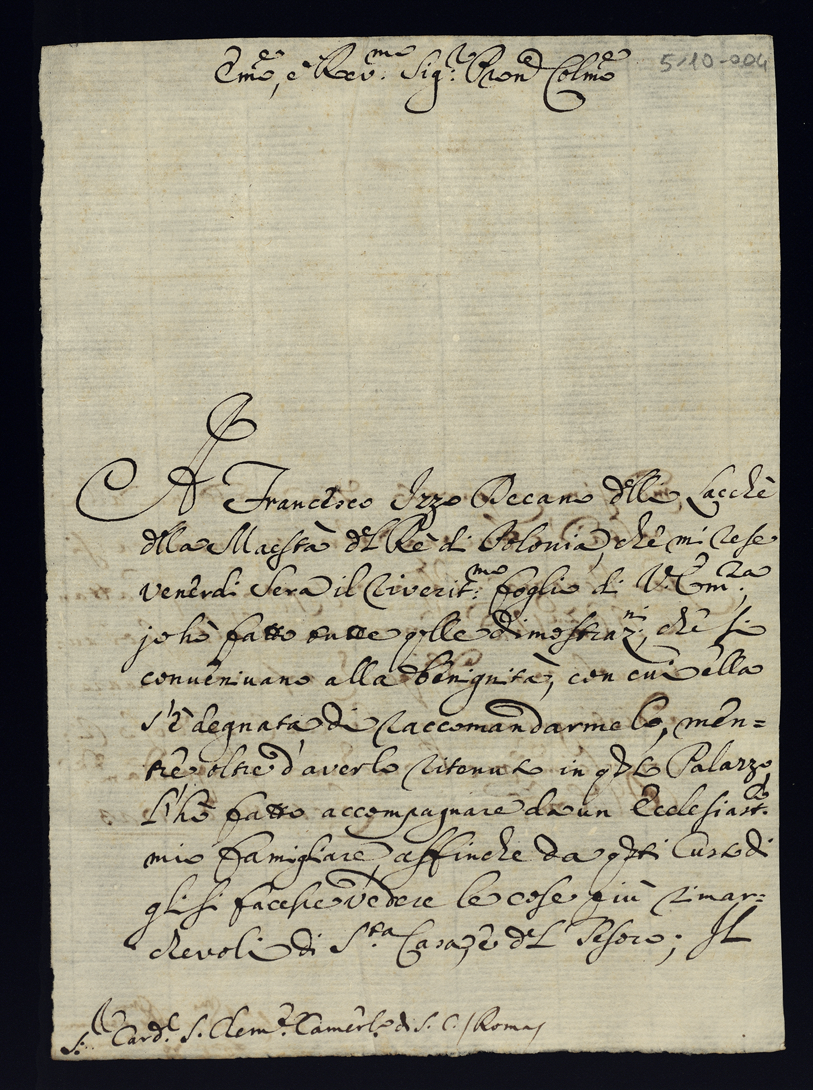 Emo, e Revmo: Sigr: Pron Colmo
5-10-004
A Francesco Izzo Decano dlle Lacchè
dlla Maestà dl Rè di Polonia, chè mi rese
venerdi sera il riveritmo: foglio di V: Emza:,
jo hò fatto tutte qlle dimostrazni:, chè si
convenivano alla benignità, con cui ella
s'è degnata di raccomandarmelo, men=
trè oltre d'averlo ritenuto in qsto Palazzo,
l'hò fatto accompagnare da un Ecclesiastco:
mio famigliare, affinche da qsti Custodi
gli si facesse vedere le cose più rimar=
chevoli di Sta Casa, e dl Tesoro; Il
S: Cardl S. Clemte: Camerlo di S. C. / Roma /